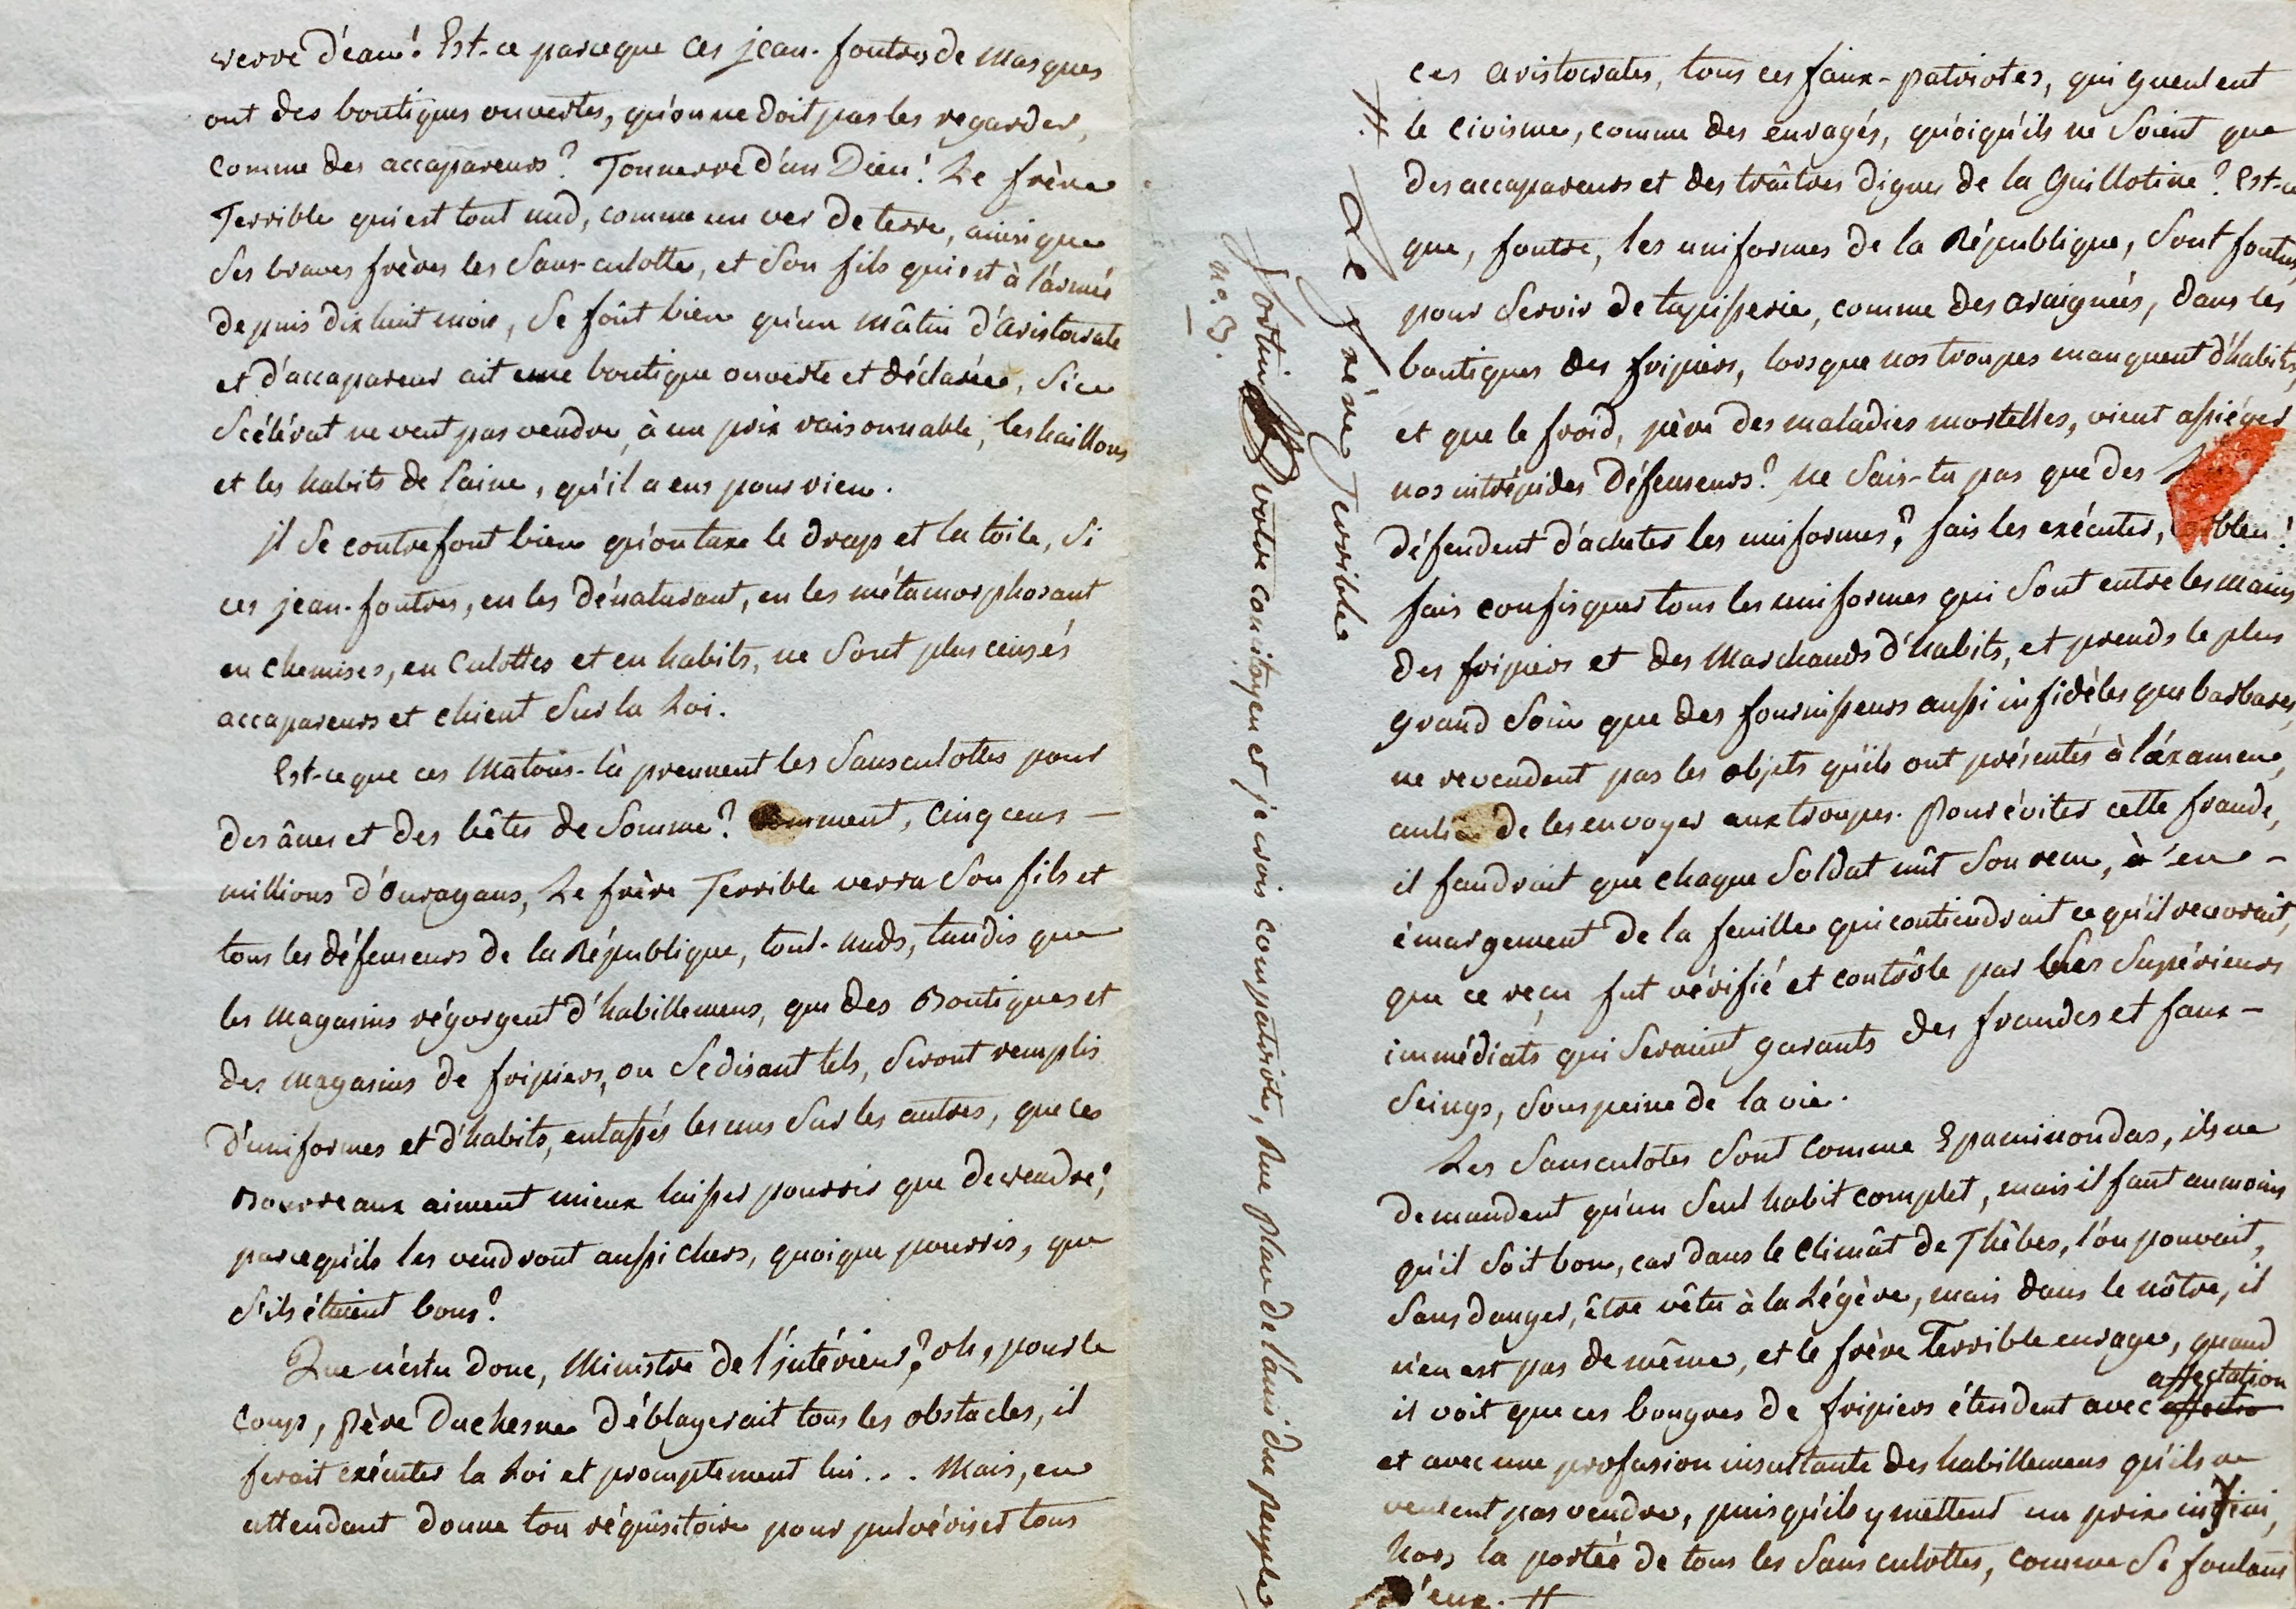 verre d'eau! Est-ce parceque ces jean-foutres de Masques
ont des boutiques ouvertes, qu'on ne doit pas les regarder,
comme des accapareurs? Tonnerre d'un Dieu! Le frère
Terrible qui est tout nud, comme un ver de terre, ainsi que
Ses braves frères les Sans-culotte, et Son fils qui est à l'armée
depuis dix huit mois, Se fout bien qu'un mâtin d'aristocrate
et d'accapareur ait une boutique ouverte et déclarée, Si ce
Scélérat ne veut pas vendre, à un prix raisonnable, les haillons
et les habits de laine, qu'il a eus pour rien.
il Se contrefout bien qu'on taxe le drap et la toile, Si
ces jean-foutres, en les dénaturant, en les métamorphosant
en chemises, en Culottes et en habits, ne Sont plus censés
accapareurs et chient Sur la Loi.
Est-ce que ces Matois-là prennent les Sansculottes pour
des ânes et des bêtes de Somme? Comment, Cinq cens
millions d'Ouragans, Le frère Terrible verra Son fils et
tous les défenseurs de la République, tout-nuds, tandis que
les Magasins régorgent d'habillemens, que des Boutiques et
des Magasins de fripiers, ou Sedisant tels, Seront remplis
d'uniformes et d'habits, entassés les uns Sur les autres, que ces
Bourreaux aiment mieux laisser pourrir que de vendre,
parcequ'ils les vendront aussi chers, quoique pourris, que
S'ils étaient bons?
Que n'es-tu donc, Ministre de l'intérieur? oh, pour le
Coup, Père Duchesne déblayerait tous les obstacles, il
ferait exécuter la Loi et promptement lui... Mais, en
attendant donne ton réquisitoire pour pulvériser tous
ces aristocrates, tous ces faux-patriotes, qui gueulent
le civisme, comme des enragés, quoiqu'ils ne Soient que
des accapareurs et des traîtres dignes de la Guillotine? Est-ce
que, foutre, les uniformes de la République, Sont foutus
pour Servir de tapisserie, comme des araignées, dans les
boutiques des fripiers, lorsque nos troupes manquent d'habits,
et que le froid, père des maladies mortelles, vient assiéger
nos intrépides défenseurs? ne Sais-tu pas que des
défendent d'acheter les uniformes? fais les exécuter,
fais confisquer tous les uniformes qui Sont entre les mains
des fripiers et des Marchands d'habits, et prends le plus
grand Soin que des fournisseurs aussi infidèles que barbares,
ne revendent pas les objets qu'ils ont présentés à l'éxamen,
aulieu de les envoyer aux troupes. Pour éviter cette fraude,
il faudrait que chaque Soldat mît Son reçu, à l'en
émargement de la feuille qui contiendrait ce qu'il recevrait,
que ce reçu fut vérifié et contrôlé par les Supérieurs
immédiats qui Seraient garants des fraudes et faux-
Seings, Sous peine de la vie.
Les Sansculotes Sont comme Epaminondas, ils ne
demandent qu'un Seul habit complet, mais il faut aumoins
qu'il Soit bon, car dans le Climât de Thèbes, l'on pouvait,
Sans danger, être vêtu à la Légère, mais dans le nôtre, il
n'en est pas de même, et le frère Terrible enrage, quand
il voit que ces bougres de fripiers étendent avec affectation
et avec une profusion insultante des habillemens qu'ils ne
veulent pas vendre, puisqu'ils y mettent un prix infini,
hors la portée de tous les Sans culottes, comme Se foutant
d'eux. #
#. Le Frère Terrible
votre concitoyen et je crois compatriote, Rue place de l'ami du peuple
n°. 3.